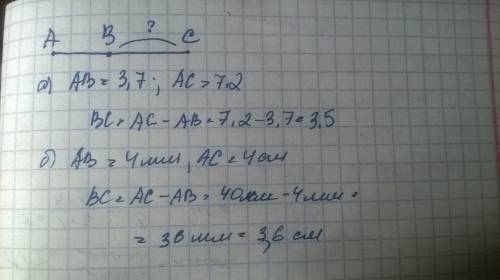 ?
A B C
а) AB = 3,7 ; AC = 7.2
BC = AC - AB = 7,2 - 3,7 = 3,5
б) AB = 4 мм, AC = 4 см
BC = AC - AB = 40 мм - 4 мм =
= 36 мм = 3,6 см